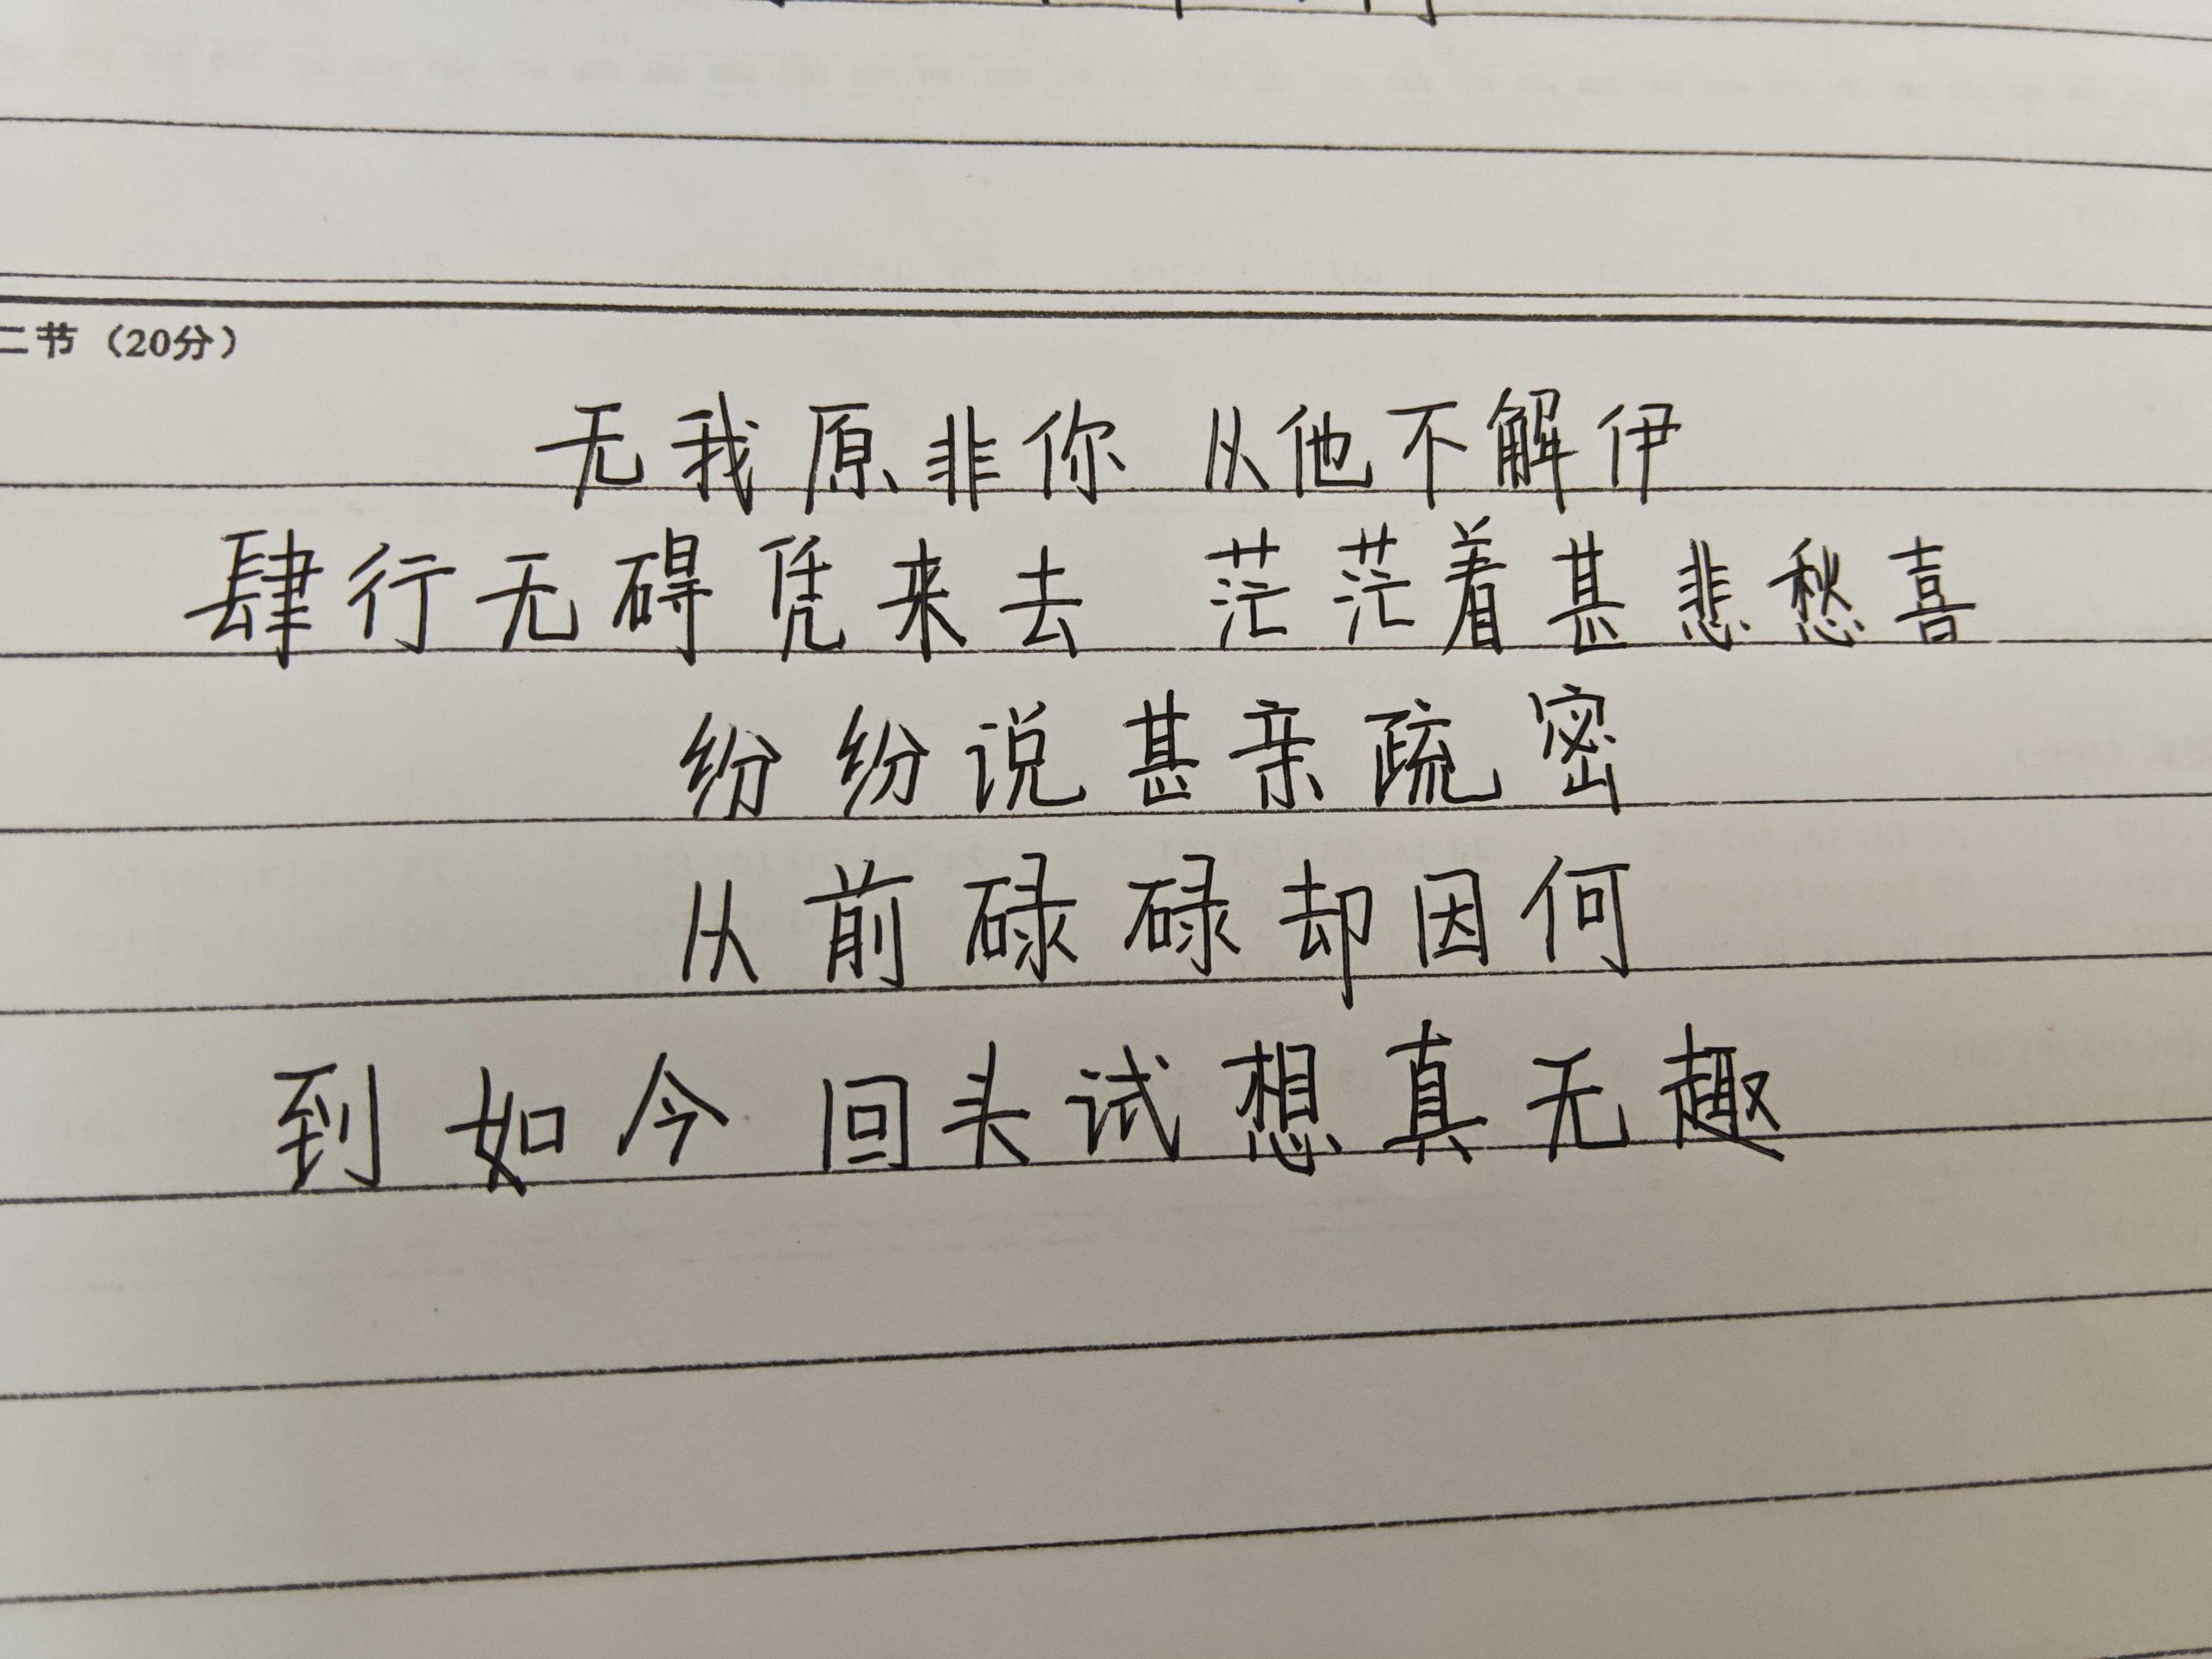 二节（20分）
无我原非你 从他不解伊
肆行无碍凭来去 茫茫着甚悲愁喜
纷纷说甚亲疏密
从前碌碌却因何
到如今 回头试想真无趣